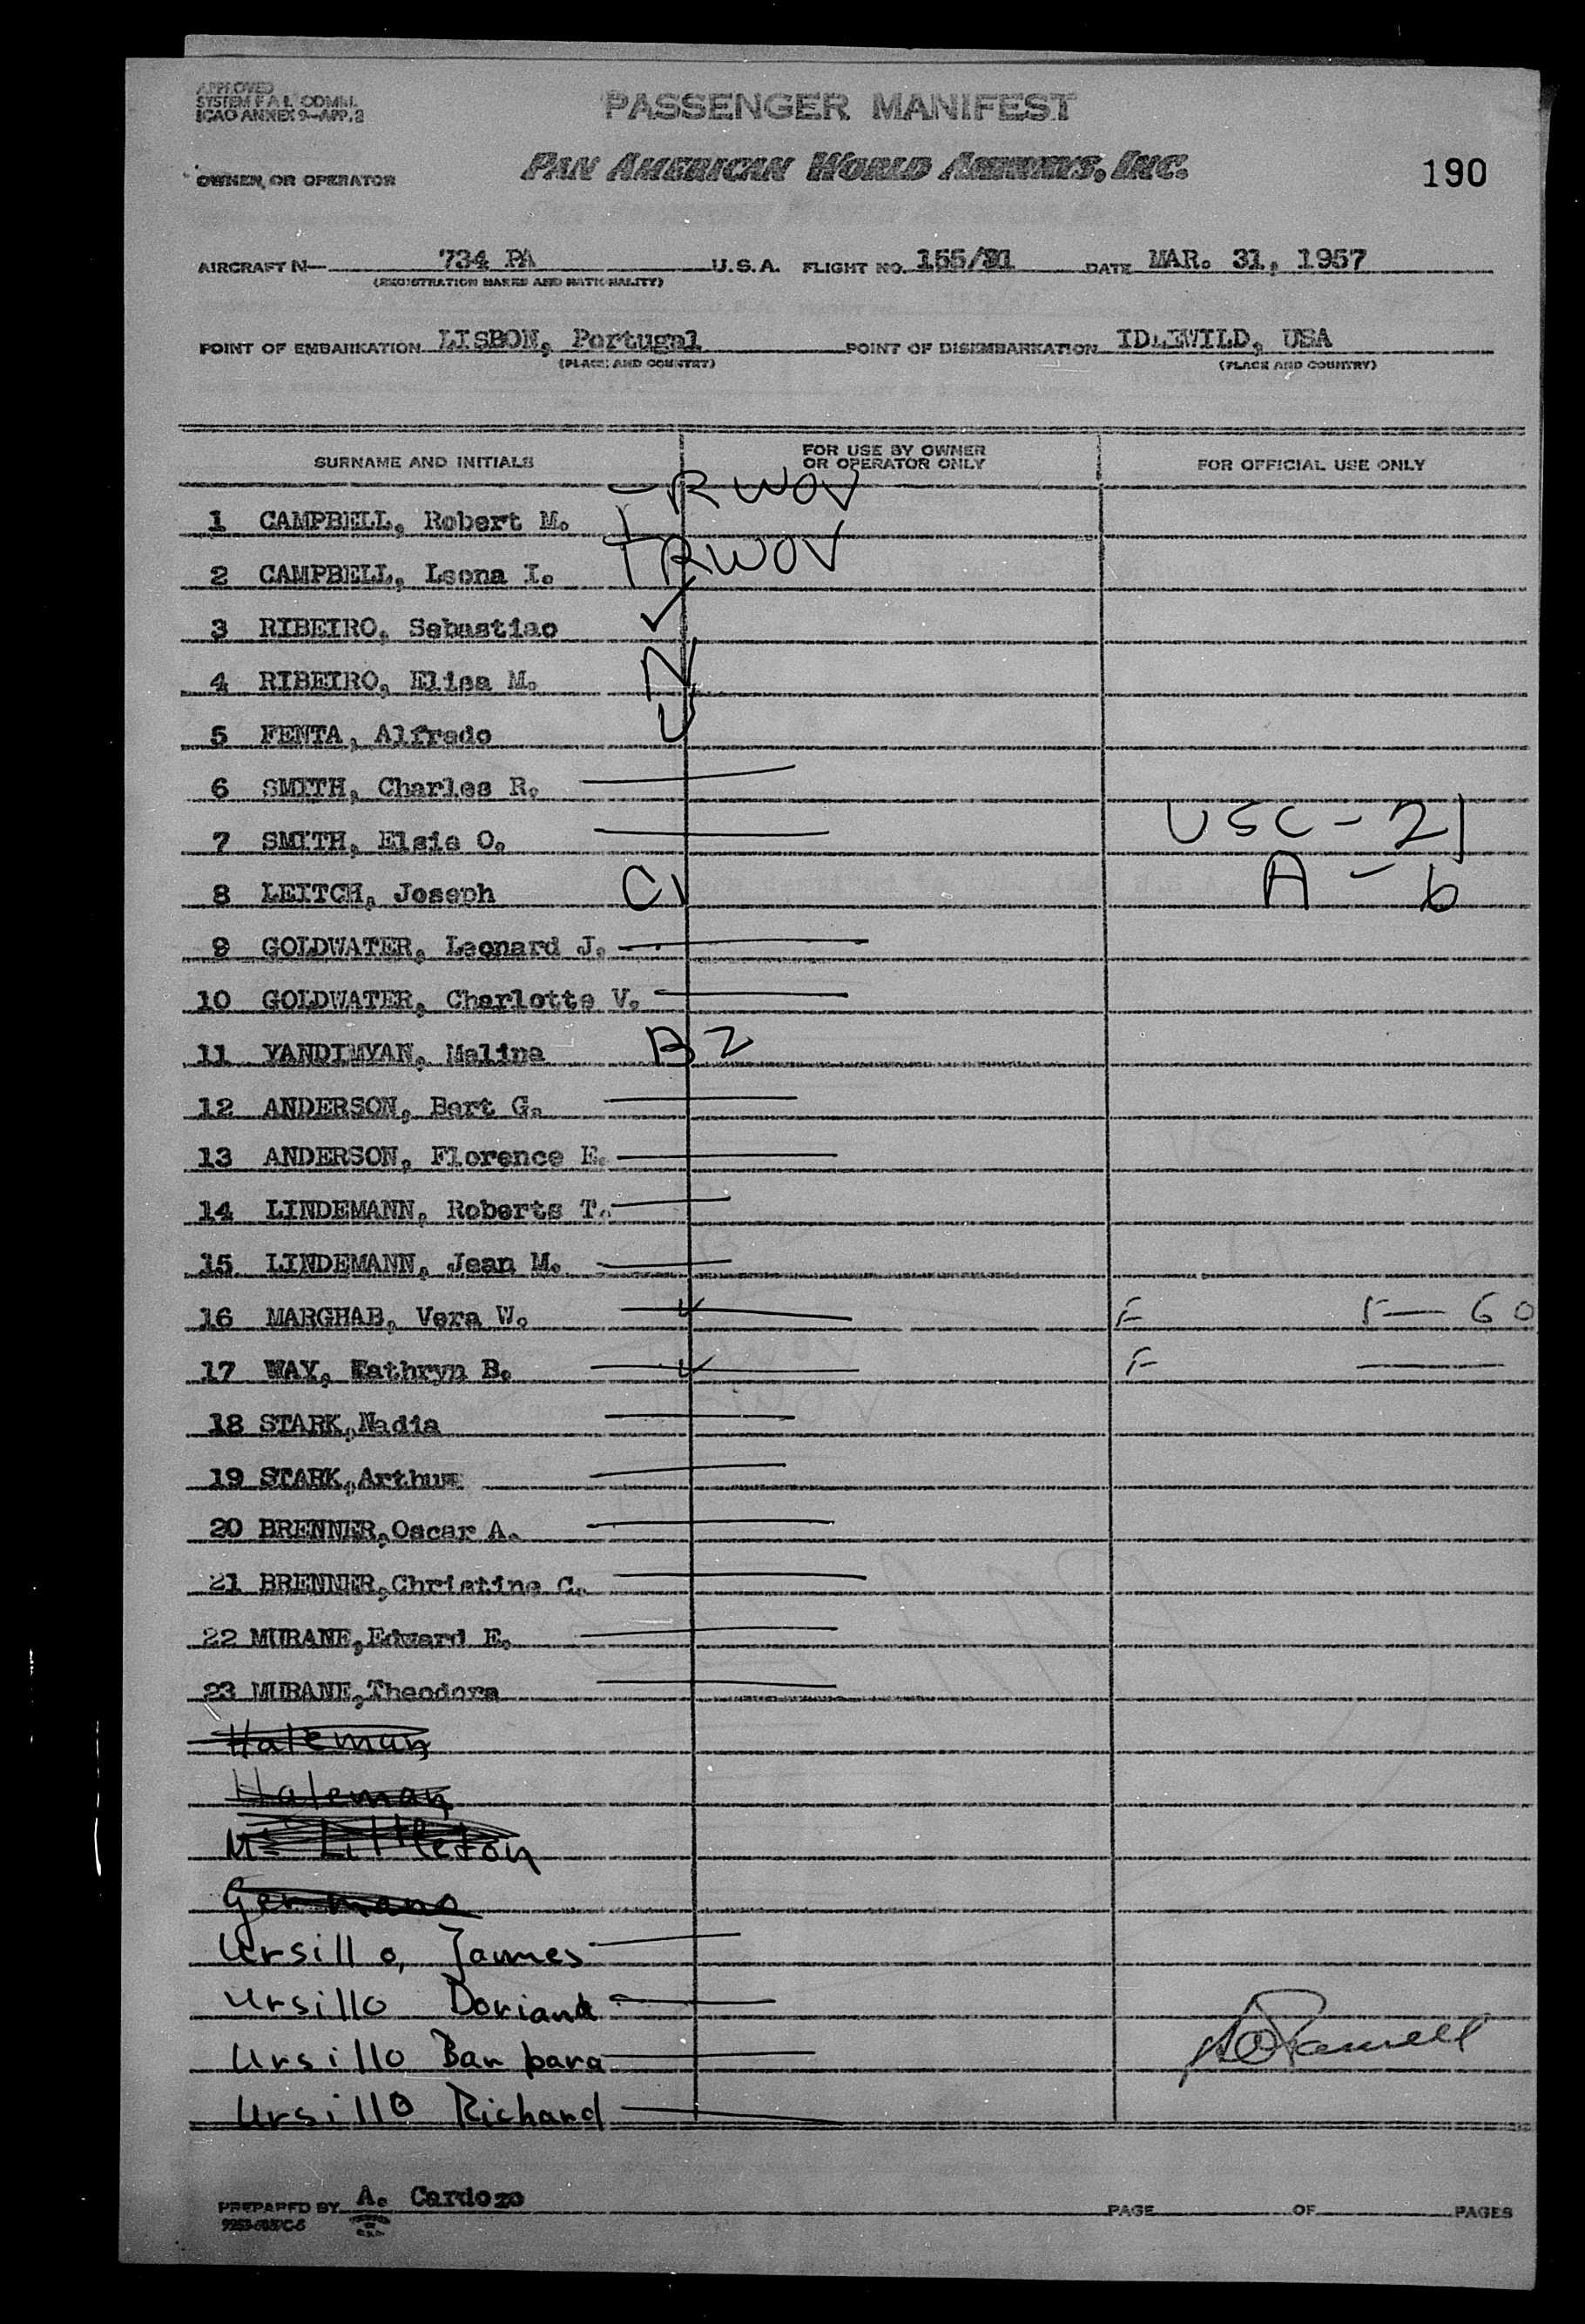 APPROVED
SYSTEM F A L COMM.
ICAO ANNEX 9—APP. 2
PASSENGER MANIFEST
OWNER, OR OPERATOR PAN AMERICAN WORLD AIRWAYS, INC. 190
AIRCRAFT N— 734 PA U.S.A. FLIGHT NO. 155/31 DATE MAR. 31, 1957
(REGISTRATION MARKS AND NATIONALITY)
POINT OF EMBARKATION LISBON, Portugal POINT OF DISEMBARKATION IDLEWILD, USA
(PLACE AND COUNTRY) (PLACE AND COUNTRY)
SURNAME AND INITIALS FOR USE BY OWNER OR OPERATOR ONLY FOR OFFICIAL USE ONLY
1 CAMPBELL, Robert M. — RWOV
2 CAMPBELL, Leona I. RWOV
3 RIBEIRO, Sebastiao ✓
4 RIBEIRO, Elisa M. N
5 FENTA, Alfredo U
6 SMITH, Charles R. —
7 SMITH, Elsie O. — USC - 21
8 LEITCH, Joseph C1 A - 6
9 GOLDWATER, Leonard J. —
10 GOLDWATER, Charlotte V. —
11 VANDIMYAN, Malina B2
12 ANDERSON, Bert G. —
13 ANDERSON, Florence E. —
14 LINDEMANN, Roberts T. —
15 LINDEMANN, Jean M. —
16 MARGHAB, Vera W. — F 60
17 WAY, Kathryn B. — F —
18 STARK,Nadia —
19 STARK,Arthur —
20 BRENNER,Oscar A. —
21 BRENNER,Christine C. —
22 MURANE,Edward E. —
23 MURANE,Theodora —
Haleman
Haleman
Littleton
Germano
Ursillo, James —
Ursillo Doriana —
Ursillo Barbara —
Ursillo Richard —
PREPARED BY A. Cardozo PAGE OF PAGES